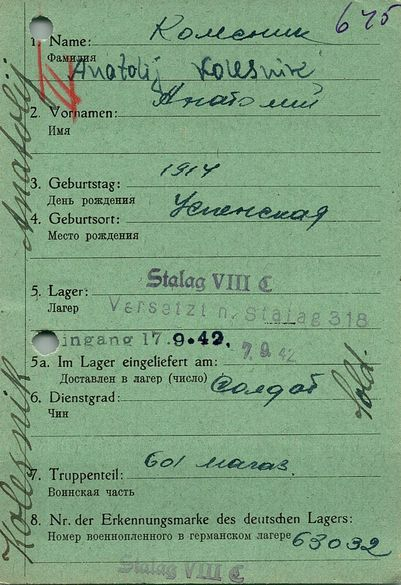 675
1. Name: Колесник
Фамилия
Anatolij Kolesnik
2. Vornamen: Анатолий
Имя
3. Geburtstag: 1914
День рождения
4. Geburtsort: Успенская
Место рождения
Stalag VIII C
5. Lager:
Лагер
Versetzt n. Stalag 318
ingang 17.9.42. 7.9.42
5a. Im Lager eingeliefert am:
Доставлен в лагер (число)
6. Dienstgrad: Солдат
Чин
Sold.
7. Truppenteil: 601
Воинская часть
8. Nr. der Erkennungsmarke des deutschen Lagers:
Номер военнопленного в германском лагере 63032
Stalag VIII C
Kolesnik Anatolij